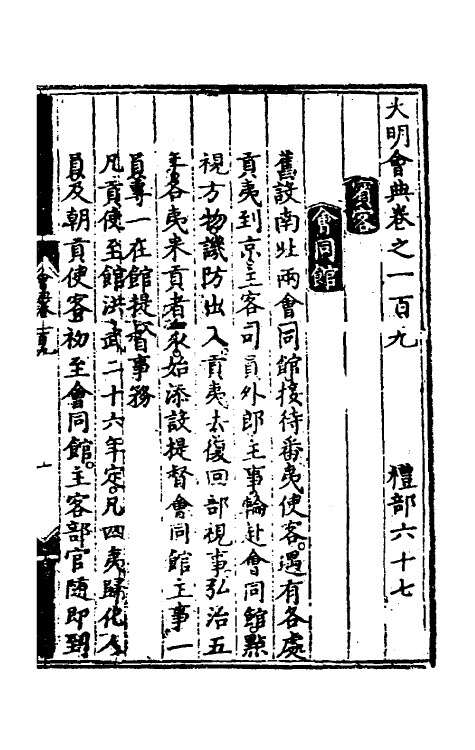 大明會典卷之一百九　禮部六十七
賓客
會同館
舊設南北兩會同館接待番夷使客遇有各處
貢夷到京主客司員外郎主事輪赴會同館點
視方物譏防出入貢夷去復回部視事弘治五
年各夷来貢者衆始添設提督會同館主事一
員專一在館提督事務
凡貢使至館洪武二十六年定凡四夷歸化人
員及朝貢使客初至會同館主客部官隨即到